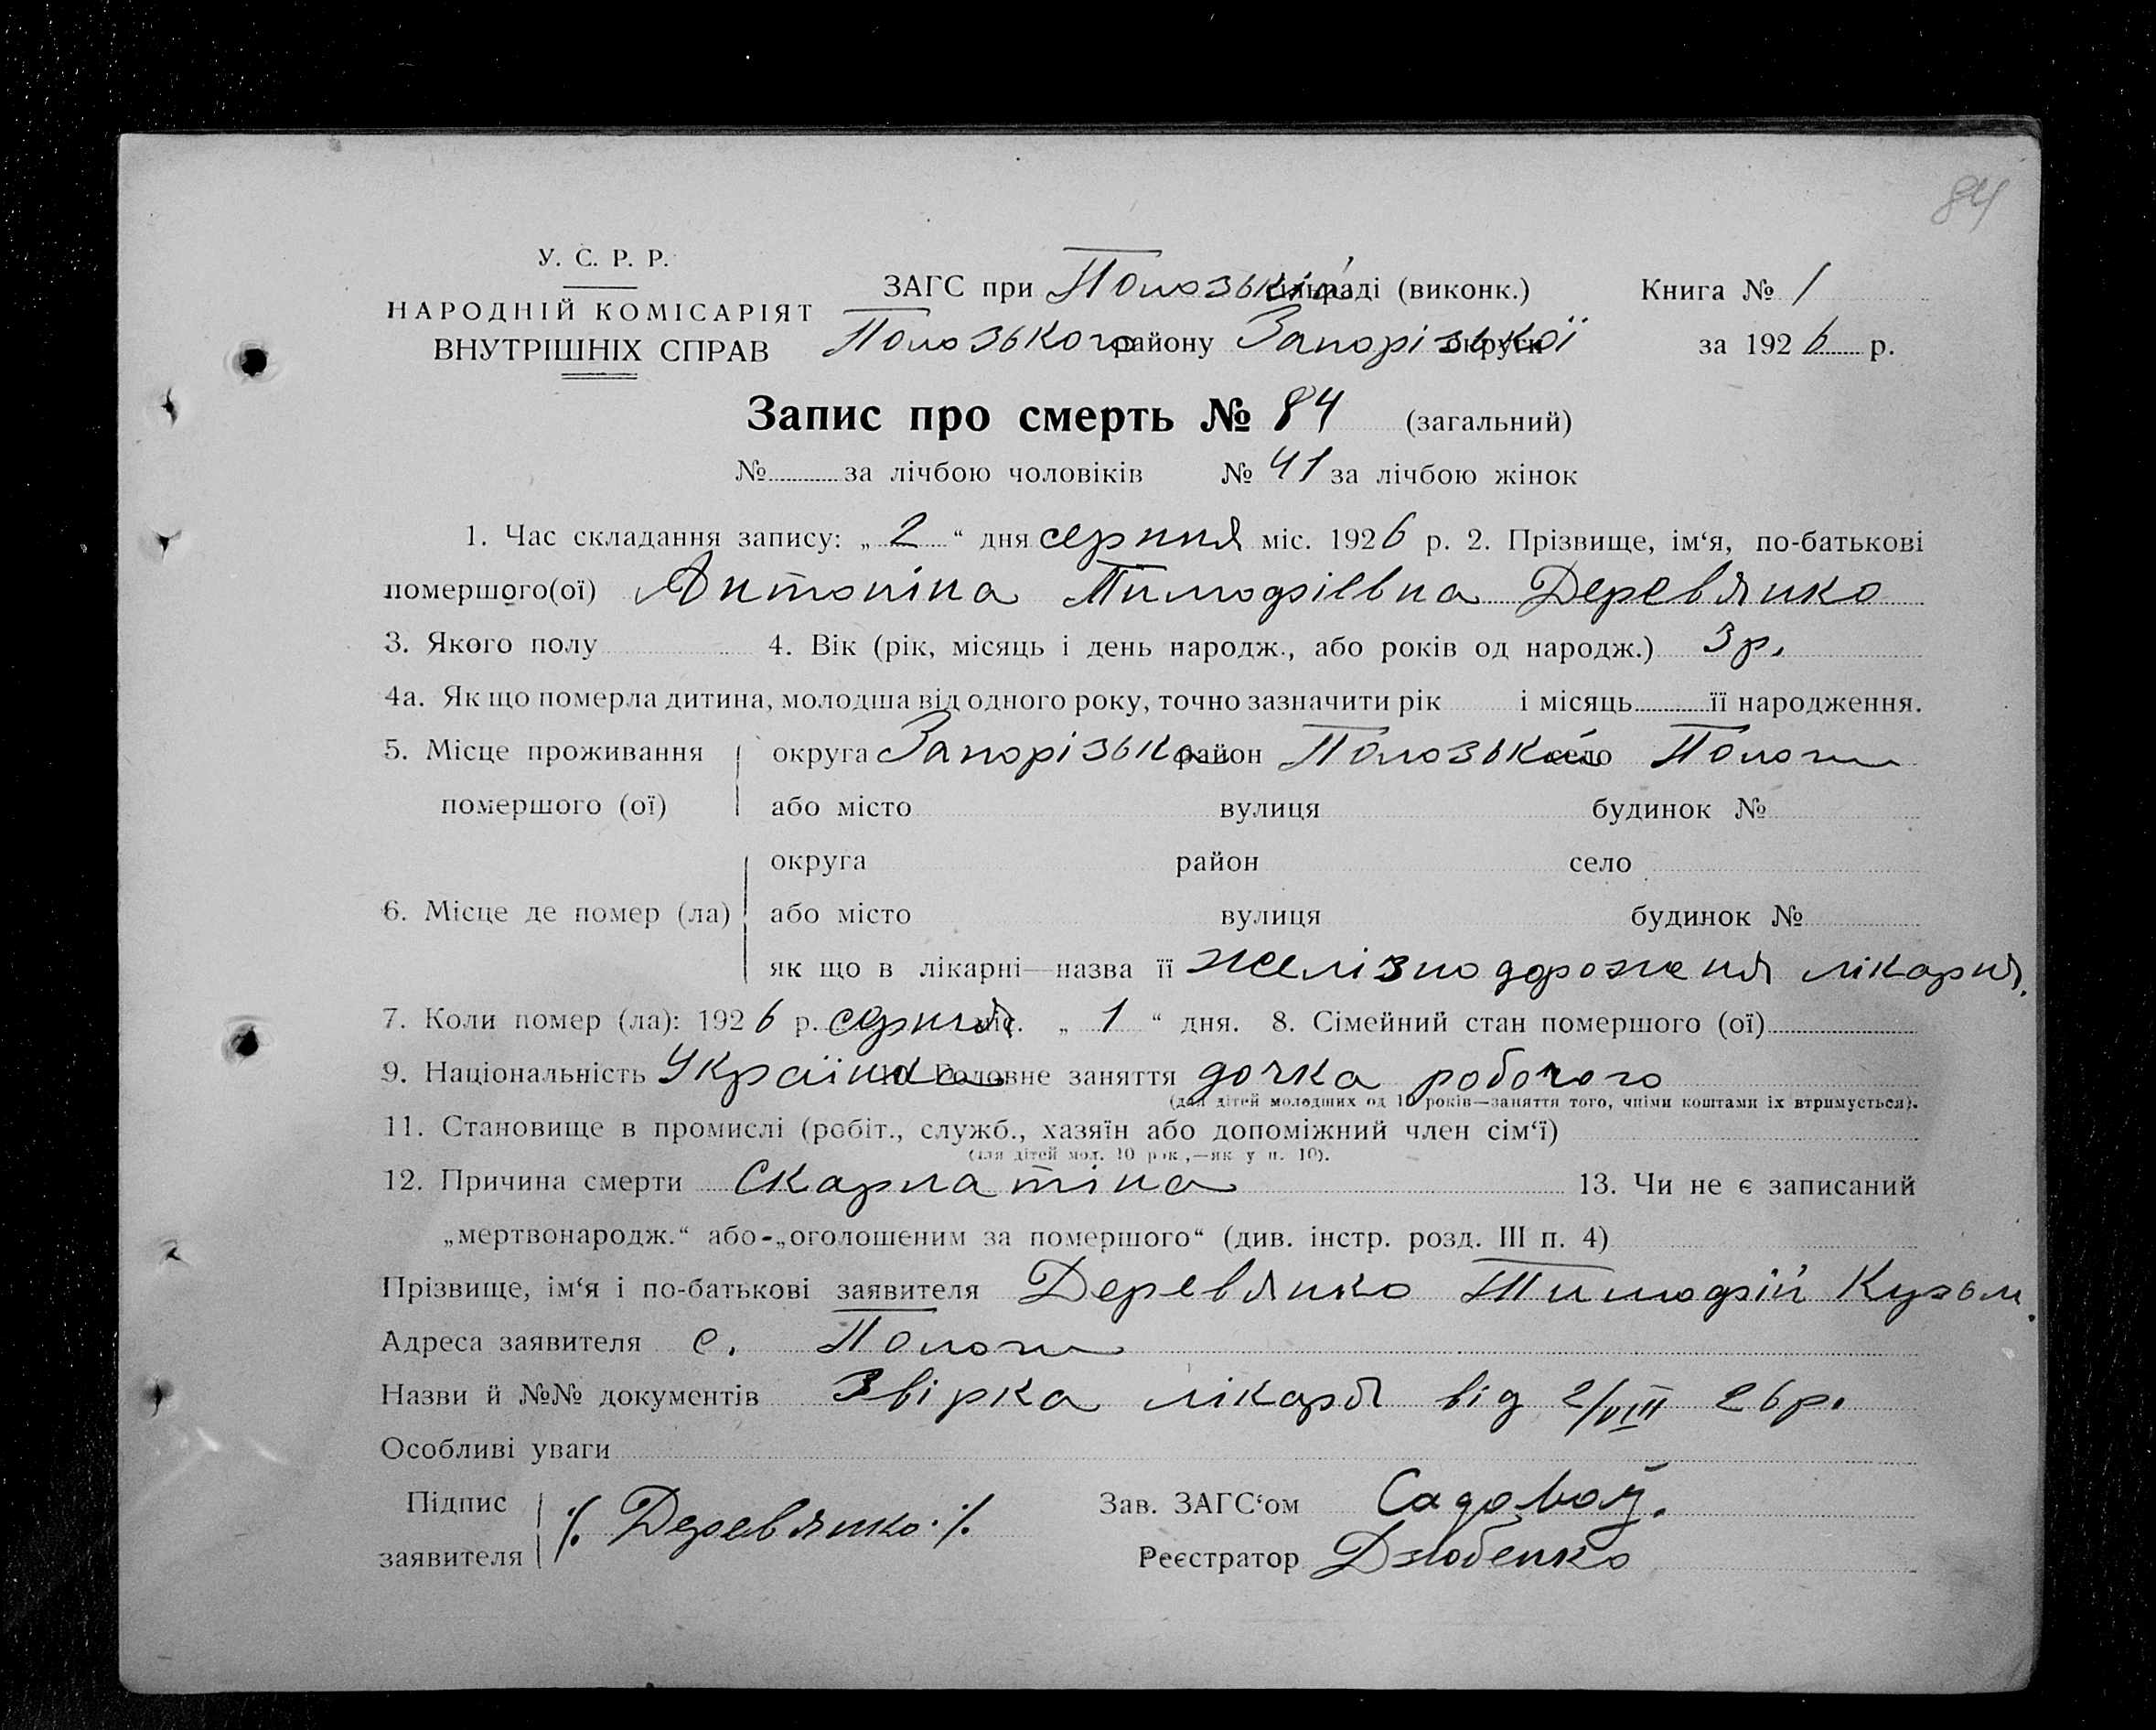 84
У. С. Р. Р.
НАРОДНІЙ КОМІСАРІЯТ
ВНУТРІШНІХ СПРАВ
ЗАГС при Полозькій раді (виконк.)
Полозького району Запорізької округи
Книга № 1
за 1926 р.
Запис про смерть № 84 (загальний)
№ за лічбою чоловіків № 41 за лічбою жінок
1. Час складання запису: „ 2 “ дня серпня міс. 1926 р. 2. Прізвище, ім‘я, по-батькові
помершого(ої) Антоніна Тимофіевна Деревянко
3. Якого полу 4. Вік (рік, місяць і день народж., або років од народж.) 3 р.
4а. Як що померла дитина, молодша від одного року, точно зазначити рік і місяць її народження.
5. Місце проживання помершого (ої) округа Запорізька район Полозький село Пологи
або місто вулиця будинок №
округа район село
6. Місце де помер (ла) або місто вулиця будинок №
як що в лікарні—назва її желізнодорожня лікарня.
7. Коли помер (ла): 1926 р. серпня міс. „ 1 “ дня. 8. Сімейний стан помершого (ої)
9. Національність Українка 10. Головне заняття дочка робочого
(для дітей молодших од 10 років—заняття того, чиїми коштами їх втримується).
11. Становище в промислі (робіт., служб., хазяїн або допоміжний член сім‘ї)
(для дітей мол. 10 рок.,—як у п. 10).
12. Причина смерти Скарлатіна 13. Чи не є записаний
„мертвонародж.“ або-„оголошеним за помершого“ (див. інстр. розд. III п. 4)
Прізвище, ім‘я і по-батькові заявителя Деревянко Тимофій Кузьм.
Адреса заявителя с. Пологи
Назви й №№ документів Звірка лікаря від 2/VIII 26 р.
Особливі уваги
Підпис заявителя /. Деревянко ./.
Зав. ЗАГС‘ом Садовой.
Реєстратор Дзюбенко